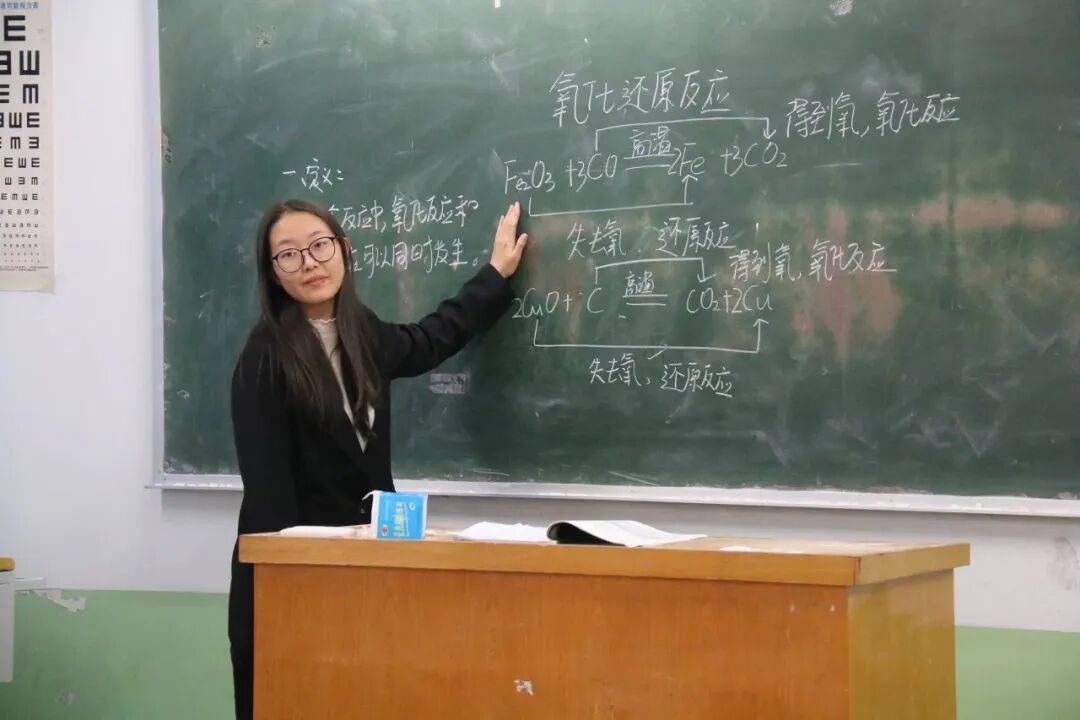 氧化还原反应
得到氧,氧化反应
高温
Fe₂O₃ +3CO == 2Fe +3CO₂
失去氧,还原反应
一、定义:
反应中,氧化反应和
可以同时发生。
得到氧,氧化反应
高温
2CuO + C == CO₂+2Cu
失去氧,还原反应
E